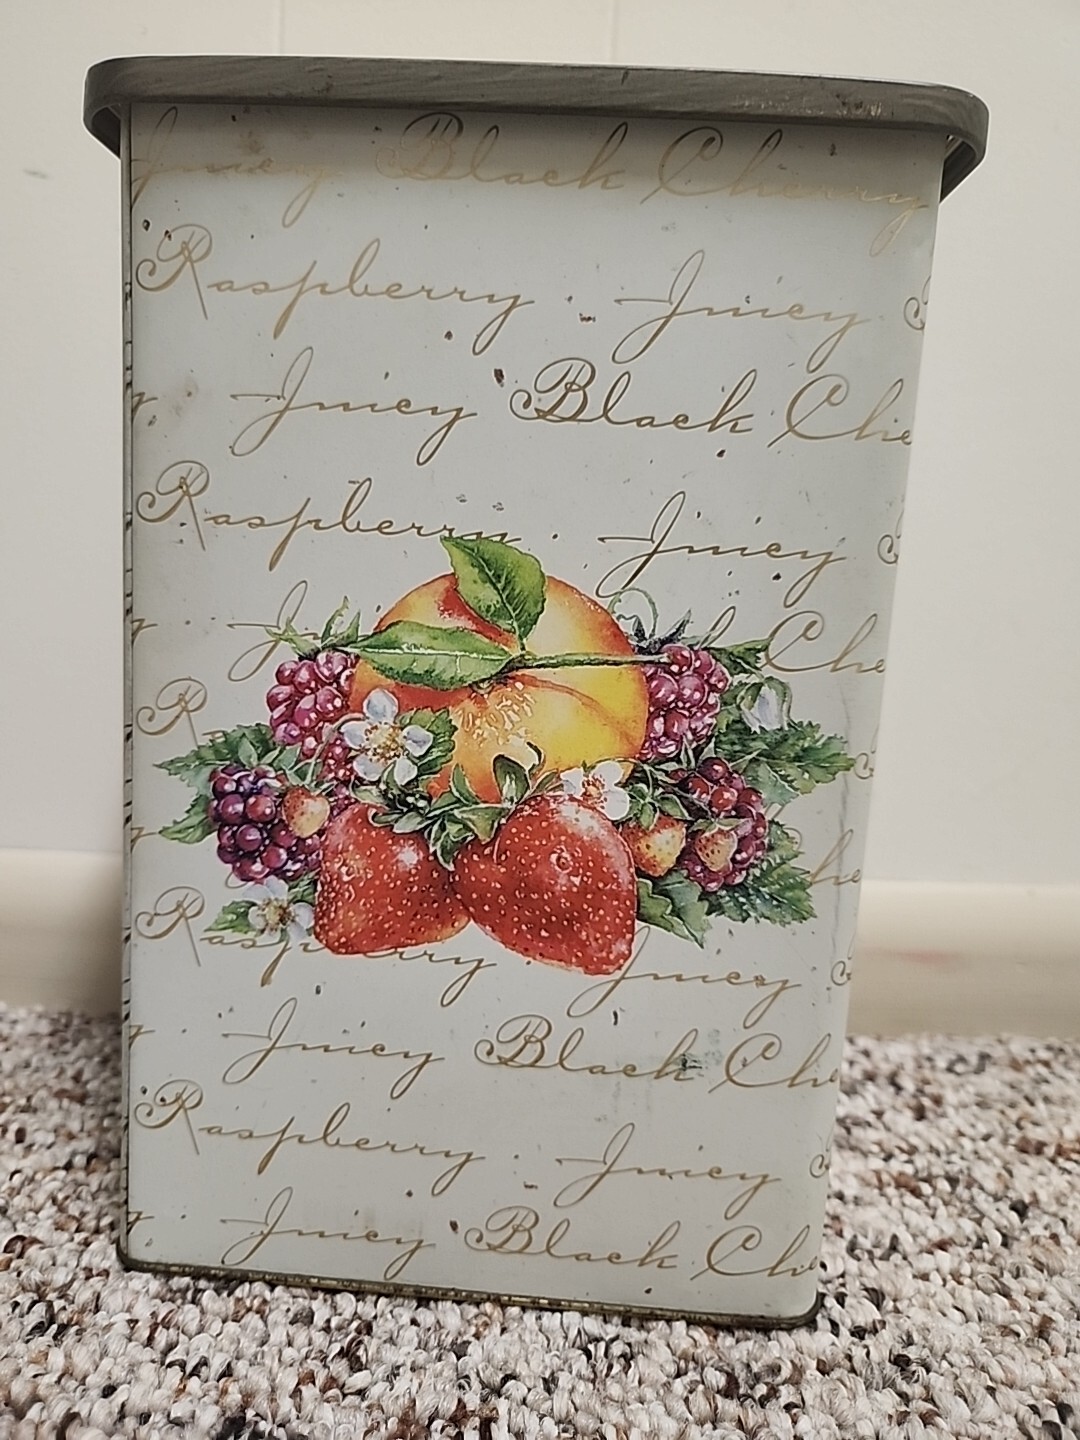 Juicy Black Cherry
Raspberry . Juicy
y . Juicy Black Che
Raspberry . Juicy
y . Ju Che
R
y he
Raspberry . Juicy
y . Juicy Black Ch
Raspberry . Juicy
y . Juicy Black Ch